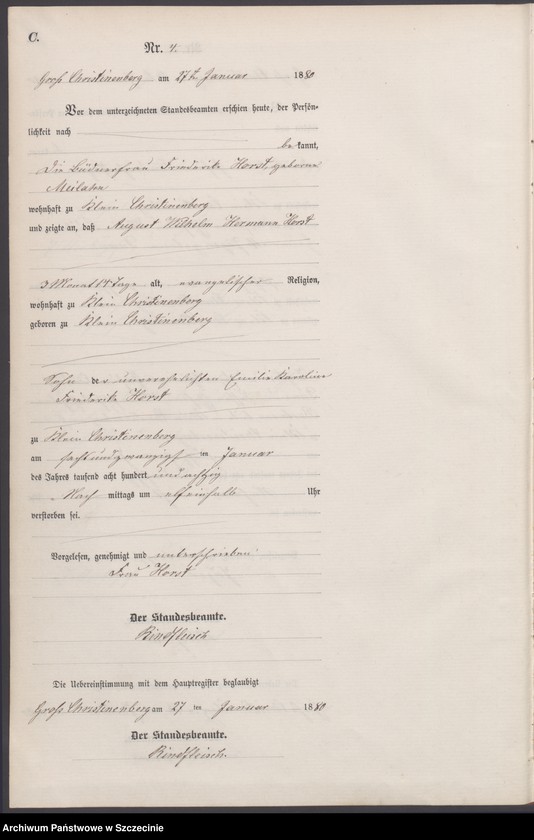 C.
Nr. 4.
Groß Christinenberg am 27ten Januar 1880
Vor dem unterzeichneten Standesbeamten erschien heute, der Persön-
lichkeit nach
be kannt,
die Büdnerfrau Friederike Horst, geborene
wohnhaft zu Klein Christinenberg
und zeigte an, daß August Wilhelm Hermann Horst
3 Monat 14 Tage alt, evangelischer Religion,
wohnhaft zu Klein Christinenberg
geboren zu Klein Christinenberg
Sohn der unverehelichten Emilie Karoline
Friederike Horst
zu Klein Christinenberg
am sechsundzwanzigst en Januar
des Jahres tausend acht hundert und achtzig
Nach mittags um Uhr
verstorben sei.
Vorgelesen, genehmigt und unterschrieben
Frau Horst
Der Standesbeamte.
Rindfleisch
Die Uebereinstimmung mit dem Hauptregister beglaubigt
Groß Christinenberg am 27 ten Januar 1880
Der Standesbeamte.
Rindfleisch.
Archiwum Państwowe w Szczecinie